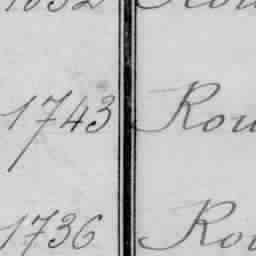 1743 Rou
1736 Rou